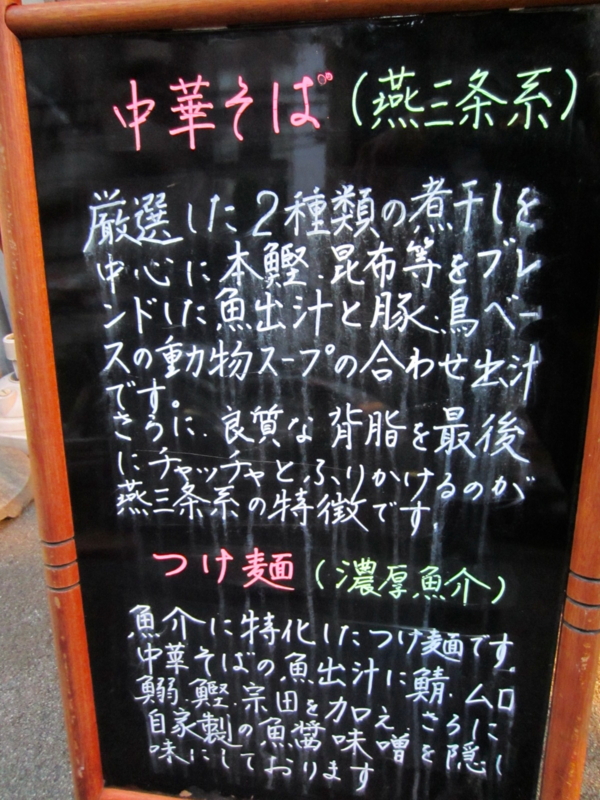 中華そば(燕三条系)
厳選した2種類の煮干しを
中心に本鰹.昆布等をブレ
ンドした魚出汁と豚.鳥ベー
スの動物スープの合わせ出汁
です。
さらに.良質な背脂を最後
にチャッチャとふりかけるのが
燕三条系の特徴です.
つけ麺(濃厚魚介)
魚介に特化したつけ麺です.
中華そばの魚出汁に鯖.ムロ
鰯.鰹.宗田を加え.さらに
自家製の魚醤味噌を隠し
味にしております